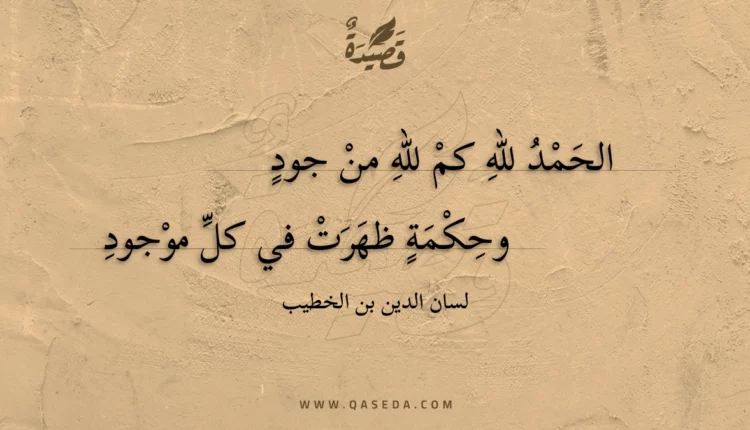 قَصِيدَةٌ
الحَمْدُ للهِ كمْ للهِ منْ جودٍ
وحِكْمَةٍ ظهَرَتْ في كلِّ موْجودِ
لسان الدين بن الخطيب
WWW.QASEDA.COM